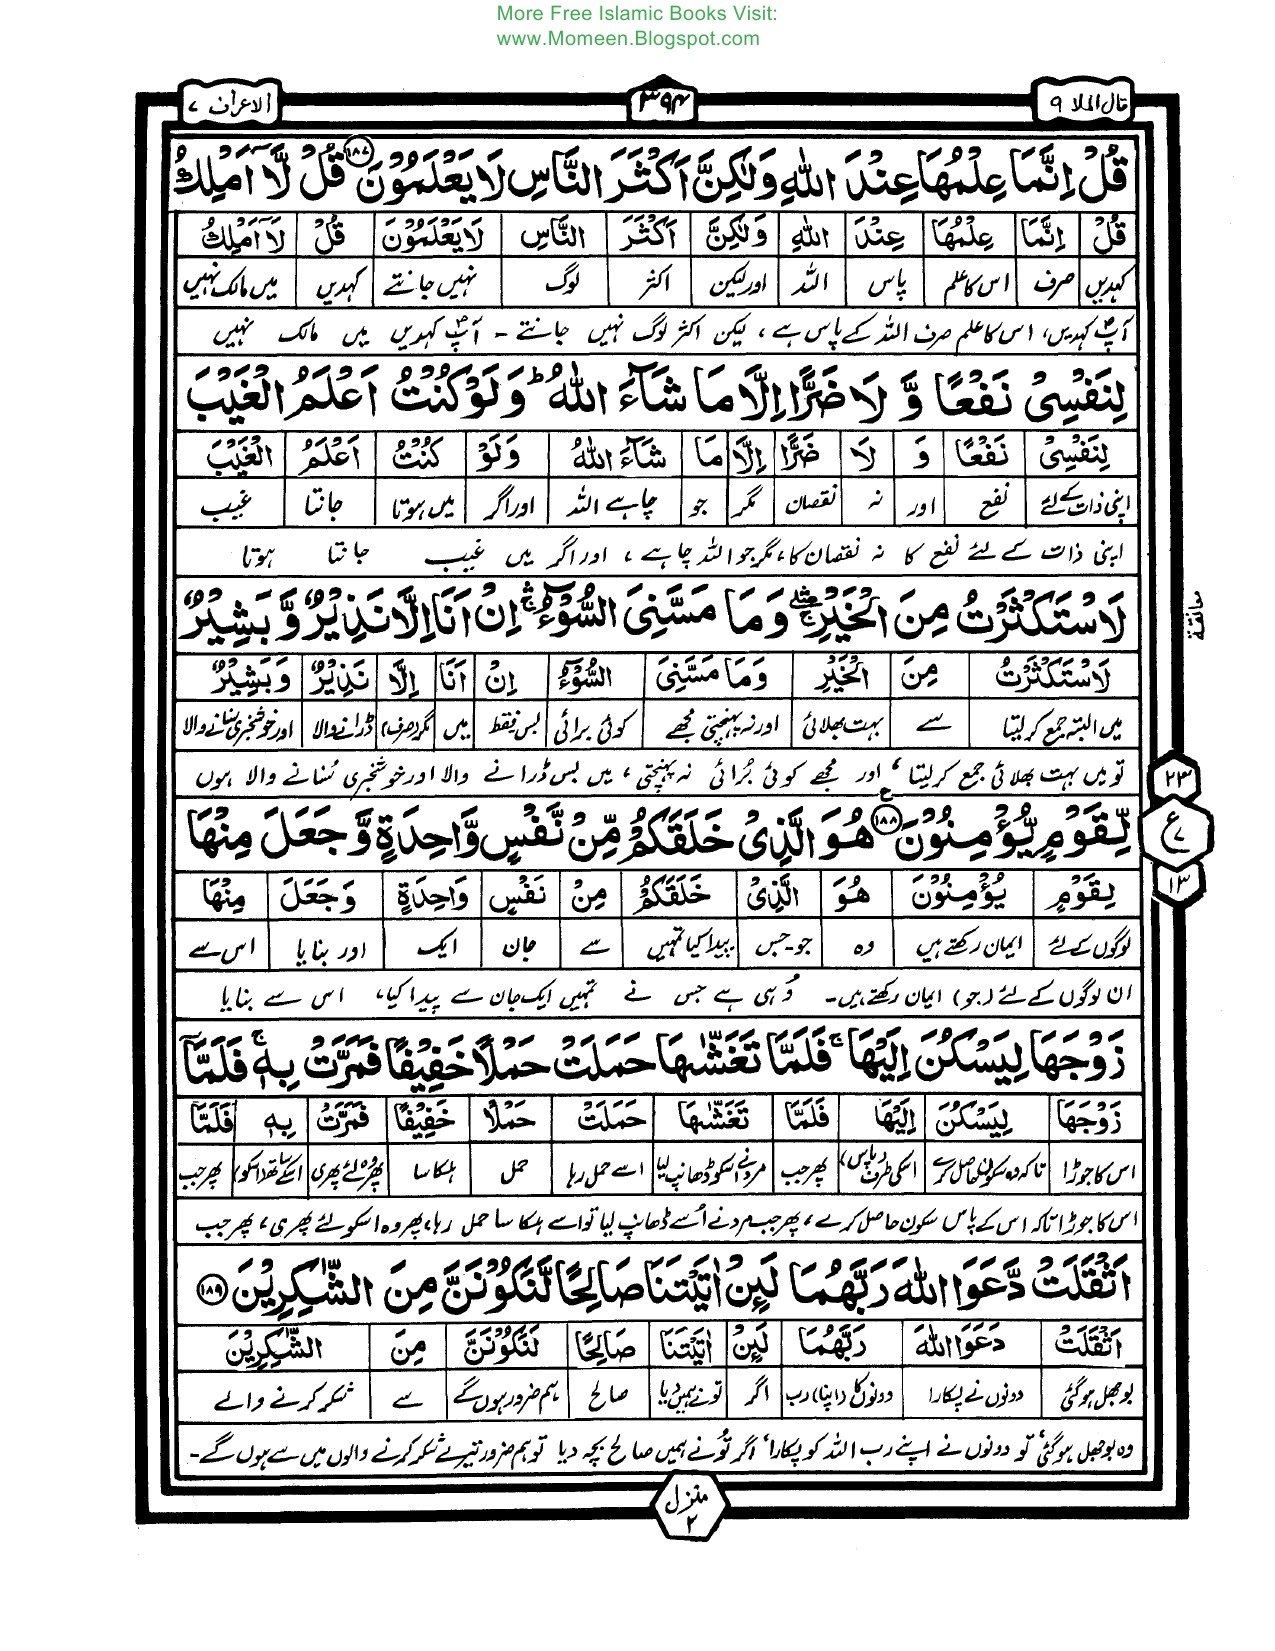 More Free Islamic Books Visit:
www.Momeen.Blogspot.com
قال الملا ٩
٣٩٤
الاعراف ٧
قُلْ اِنَّمَا عِلْمُهَا عِنْدَ اللّٰهِ وَلٰكِنَّ اَكْثَرَ النَّاسِ لَا يَعْلَمُوْنَ ١٨٧ قُلْ لَّآ اَمْلِكُ
قُلْ اِنَّمَا عِلْمُهَا عِنْدَ اللّٰهِ وَلٰكِنَّ اَكْثَرَ النَّاسِ لَا يَعْلَمُوْنَ قُلْ لَّآ اَمْلِكُ
کہدیں صرف اس کا علم پاس اللہ اور لیکن اکثر لوگ نہیں جانتے کہدیں میں مالک نہیں
آپؐ کہدیں، اس کا علم صرف اللہ کے پاس ہے، لیکن اکثر لوگ نہیں جانتے - آپؐ کہدیں میں مالک نہیں
لِنَفْسِىْ نَفْعًا وَّ لَا ضَرًّا اِلَّا مَا شَآءَ اللّٰهُ ؕ وَلَوْ كُنْتُ اَعْلَمُ الْغَيْبَ
لِنَفْسِىْ نَفْعًا وَ لَا ضَرًّا اِلَّا مَا شَآءَ اللّٰهُ وَلَوْ كُنْتُ اَعْلَمُ الْغَيْبَ
اپنی ذات کے لئے نفع اور نہ نقصان مگر جو چاہے اللہ اور اگر میں ہوتا جانتا غیب
اپنی ذات کے لئے نفع کا نہ نقصان کا، مگر جو اللہ چاہے، اور اگر میں غیب جانتا ہوتا
لَاسْتَكْثَرْتُ مِنَ الْخَيْرِ ۛۚ وَمَا مَسَّنِىَ السُّوْٓءُ ۛۚ اِنْ اَنَا اِلَّا نَذِيْرٌ وَّبَشِيْرٌ
معانقة
لَاسْتَكْثَرْتُ مِنَ الْخَيْرِ وَمَا مَسَّنِىَ السُّوْٓءُ اِنْ اَنَا اِلَّا نَذِيْرٌ وَّبَشِيْرٌ
میں البتہ جمع کرلیتا سے بہت بھلائی اور نہ پہنچتی مجھے کوئی برائی بس فقط میں مگر (صرف) ڈرانے والا اور خوشخبری سنانے والا
تو میں بہت بھلائی جمع کرلیتا، اور مجھے کوئی بُرائی نہ پہنچتی، میں بس ڈرانے والا اور خوشخبری سُنانے والا ہوں
٢٣
ع
٧
١٣
لِّقَوْمٍ يُّؤْمِنُوْنَ ١٨٨ ع هُوَ الَّذِىْ خَلَقَكُمْ مِّنْ نَّفْسٍ وَّاحِدَةٍ وَّجَعَلَ مِنْهَا
لِقَوْمٍ يُؤْمِنُوْنَ هُوَ الَّذِىْ خَلَقَكُمْ مِنْ نَفْسٍ وَاحِدَةٍ وَجَعَلَ مِنْهَا
لوگوں کے لئے ایمان رکھتے ہیں وہ جو۔جس پیدا کیا تمہیں سے جان ایک اور بنایا اس سے
ان لوگوں کے لئے (جو) ایمان رکھتے ہیں۔ وُہی ہے جس نے تمہیں ایک جان سے پیدا کیا، اس سے بنایا
زَوْجَهَا لِيَسْكُنَ اِلَيْهَا ۚ فَلَمَّا تَغَشّٰهَا حَمَلَتْ حَمْلًا خَفِيْفًا فَمَرَّتْ بِهٖ ۚ فَلَمَّآ
زَوْجَهَا لِيَسْكُنَ اِلَيْهَا فَلَمَّا تَغَشّٰهَا حَمَلَتْ حَمْلًا خَفِيْفًا فَمَرَّتْ بِهٖ فَلَمَّآ
اس کا جوڑا تاکہ وہ سکون حاصل کرے اسکی طرف (پاس) پھر جب مرد نے اسکو ڈھانپ لیا اسے حمل رہا حمل ہلکا سا پھر وہ لئے پھری اسکے ساتھ (اسکو) پھر جب
اس کا جوڑا تاکہ اس کے پاس سکون حاصل کرے، پھر جب مرد نے اُسے ڈھانپ لیا تو اسے ہلکا سا حمل رہا، پھر وہ اسکو لئے پھری، پھر جب
اَثْقَلَتْ دَّعَوَا اللّٰهَ رَبَّهُمَا لَئِنْ اٰتَيْتَنَا صَالِحًا لَّنَكُوْنَنَّ مِنَ الشّٰكِرِيْنَ ١٨٩
اَثْقَلَتْ دَعَوَا اللّٰهَ رَبَّهُمَا لَئِنْ اٰتَيْتَنَا صَالِحًا لَنَكُوْنَنَّ مِنَ الشّٰكِرِيْنَ
بوجھل ہوگئی دونوں نے پکارا دونوں کا (اپنا) رب اگر تو نے ہمیں دیا صالح ہم ضرور ہوں گے سے شکر کرنے والے
وہ بوجھل ہوگئی، تو دونوں نے اپنے رب اللہ کو پکارا، اگر تُو نے ہمیں صالح بچہ دیا تو ہم ضرور تیرے شکر کرنے والوں میں سے ہوں گے۔
منزل ٢